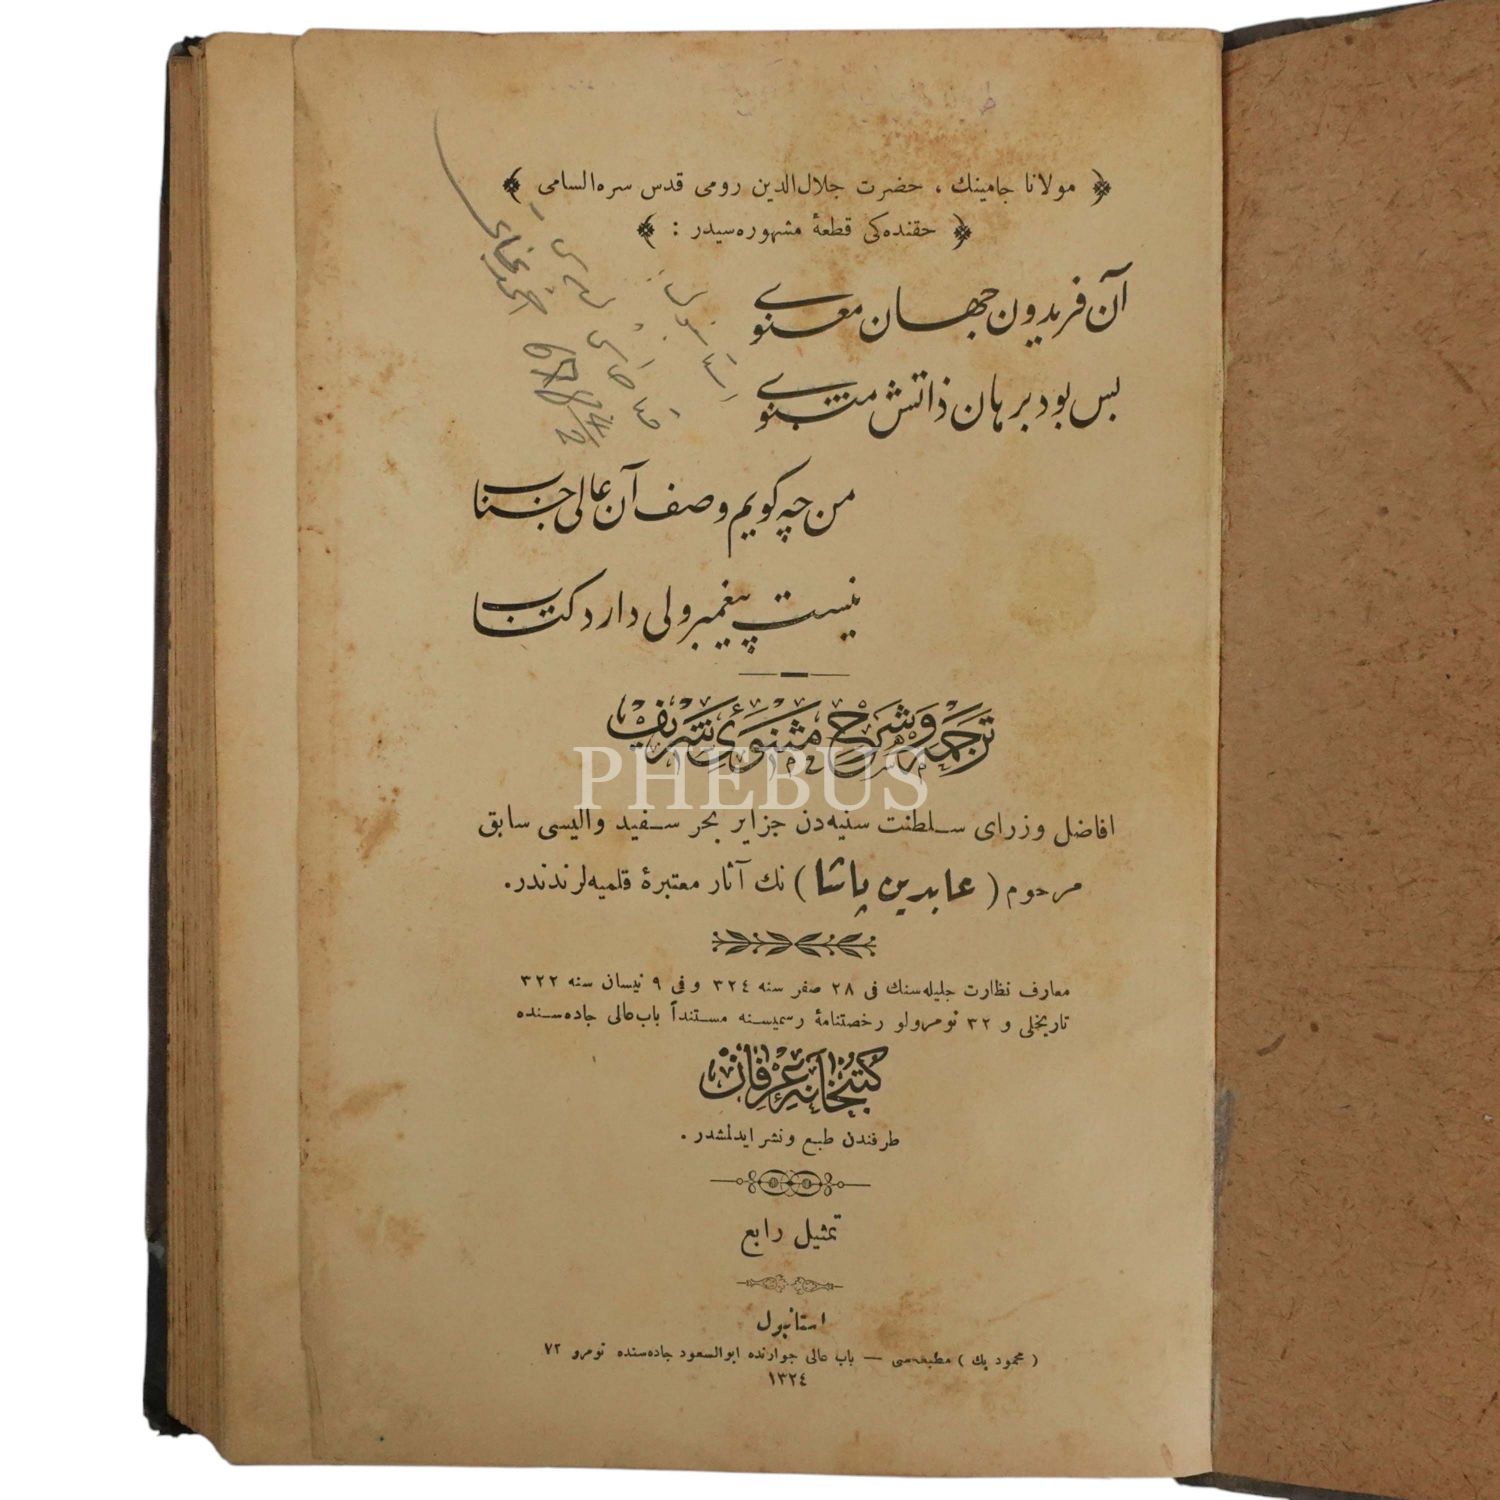 مولانا جامينك ، حضرت جلال‌الدين رومى قدس سره‌السامى
حقنده‌كى قطعهٔ مشهوره‌سيدر :
آن فريدون جهان معنوى
بس بود برهان ذاتش مثنوى
من چه كويم وصف آن عالى جناب
نيست پيغمبر ولى دارد كتاب
ترجمه و شرح مثنوئ شريف
PHEBUS
افاضل وزراى سلطنت سنيه‌دن جزاير بحر سفيد واليسى سابق
مرحوم ( عابدين پاشا ) نك آثار معتبرهٔ قلميه‌لرندندر.
معارف نظارت جليله‌سنك فى ٢٨ صفر سنه ٣٢٤ و فى ٩ نيسان سنه ٣٢٢
تاريخلى و ٣٢ نومرولو رخصتنامهٔ رسميسنه مستنداً باب‌عالى جاده‌سنده
كتبخانهٔ عرفان
طرفندن طبع و نشر ايدلمشدر .
تمثيل رابع
استانبول
( محمود بك ) مطبعه‌سى — باب عالى جوارنده ابوالسعود جاده‌سنده نومرو ٧٢
١٣٢٤